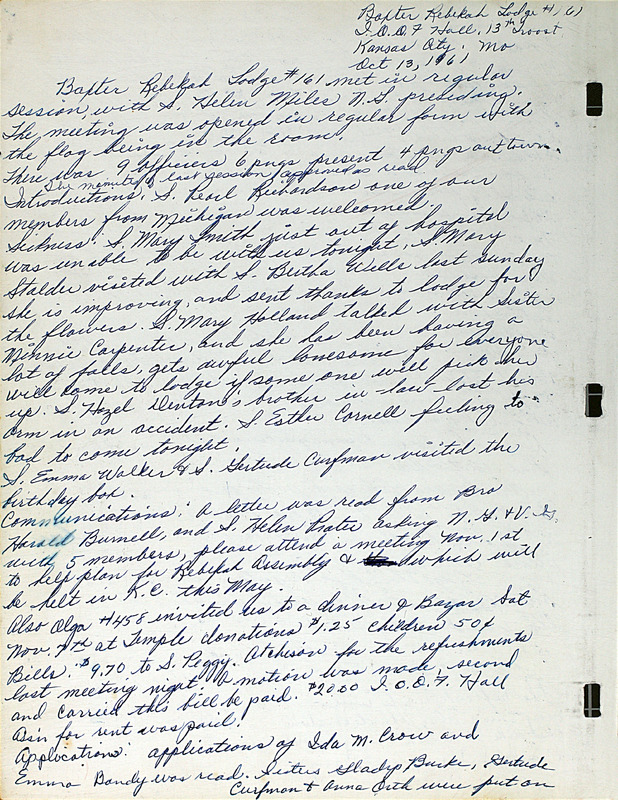 Baxter Rebekah Lodge #161
I.O.O.F Hall, 13th Troost
Kansas City. Mo
Oct 13, 1961
Baxter Rebekah Lodge #161 met in regular
session with S. Helen Miles N.G. presiding.
The meeting was opened in regular form with
the flag being in the room.
There was 9 officers 6 pngs present 4 pngs out town.
The minutes of last session approved as read
Introductions: S. Pearl Richardson one of our
members from Michigan was welcomed.
Sickness: S. Mary Smith just out of hospital
was unable to be with us tonight, S. Mary
Stalder visited with S. Bertha Wells last Sunday
she is improving, and sent thanks to lodge for
the flowers. S. Mary Holland talked with Sister
Minnie Carpenter, and she has been having a
lot of falls, gets awful lonesome for everyone
will come to lodge if some one will pick her
up. S. Hazel Denton's brother in law lost his
arm in an accident. S. Esther Cornell feeling to
bad to come tonight.
S. Emma Walker & S. Gertude Curfman visited the
birthday box.
Communications: A letter was read from Bro
Harold Burnell, and S. Helen Prater asking N.G. & V.G.
with 5 members, please attend a meeting Nov. 1st
to help plan for Rebekah Assembly & which will
be helt in K.C. this May.
Also Olga #458 invited us to a dinner & Bazar Sat
Nov. 4th at Temple donations $1.25 children 50¢
Bills: $9.70 to S. Peggy Atchison for the refreshments
last meeting night. A motion was made, second
and carried this bill be paid. $20.00 I.O.O.F. Hall
Ass'n for rent was paid.
Applications: applications of Ida M. Crow and
Emma Bandy was read. Sisters Gladys Burke, Gertude
Curfman & Anna Orth were put on